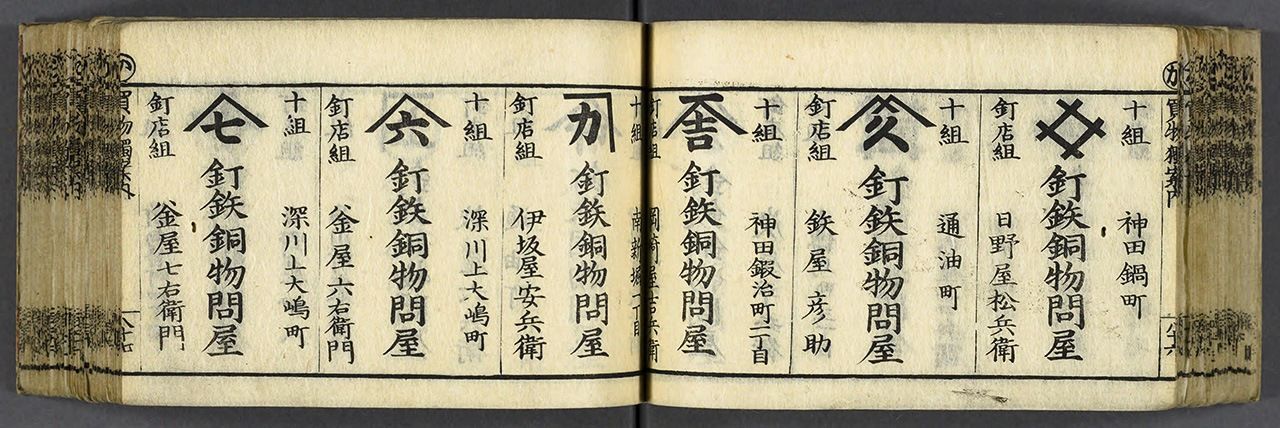 か 買物獨案内 八十六
十組 神田鍋町
釘鉄銅物問屋
釘店組 日野屋松兵衛
十組 通油町
久 釘鉄銅物問屋
釘店組 鉄屋彦助
十組 神田鍜治町二丁目
吉 釘鉄銅物問屋
釘店組 岡崎屋吉兵衛
十組 南新堀一丁目
カ 釘鉄銅物問屋
釘店組 伊坂屋安兵衛
十組 深川上大嶋町
六 釘鉄銅物問屋
釘店組 釜屋六右衛門
十組 深川上大嶋町
七 釘鉄銅物問屋
釘店組 釜屋七右衛門
か 買物獨案内 八十七